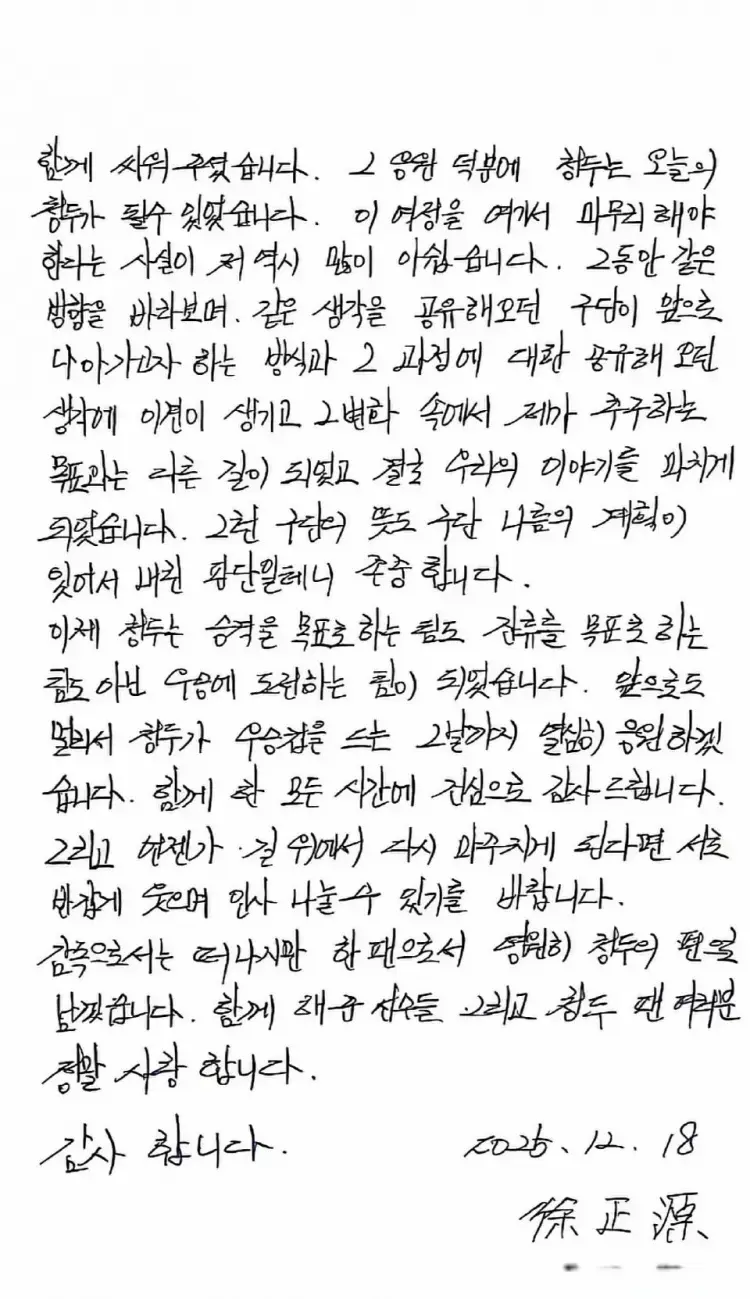 함께 싸워 주셨습니다. 그 응원 덕분에 청두는 오늘의
청두가 될수 있었습니다. 이 여정을 여기서 마무리 해야
한다는 사실이 저 역시 많이 아쉽습니다. 그동안 같은
방향을 바라보며. 같은 생각을 공유해오던 구단이 앞으로
나아가고자 하는 방식과 그 과정에 대한 공유해 오던
생각에 이견이 생기고 그변화 속에서 제가 추구하는
목표와는 다른 길이 되었고 결국 우리의 이야기를 마치게
되었습니다. 그런 구단의 뜻도 구단 나름의 계획이
있어서 내린 판단일테니 존중 합니다.
이제 청두는 승격을 목표로 하는 팀도 잔류를 목표로 하는
팀도 아닌 우승에 도전하는 팀이 되었습니다. 앞으로도
멀리서 청두가 우승컵을 드는 그날까지 열심히 응원하겠
습니다. 함께 한 모든 시간에 진심으로 감사드립니다.
그리고 언젠가 길 위에서 다시 마주치게 된다면 서로
반갑게 웃으며 인사 나눌수 있기를 바랍니다.
감독으로서는 떠나지만 한 팬으로서 영원히 청두의 편으로
남겠습니다. 함께 해준 선수들 그리고 청두 팬 여러분
정말 사랑 합니다.
감사 합니다. 2025. 12. 18
徐正源